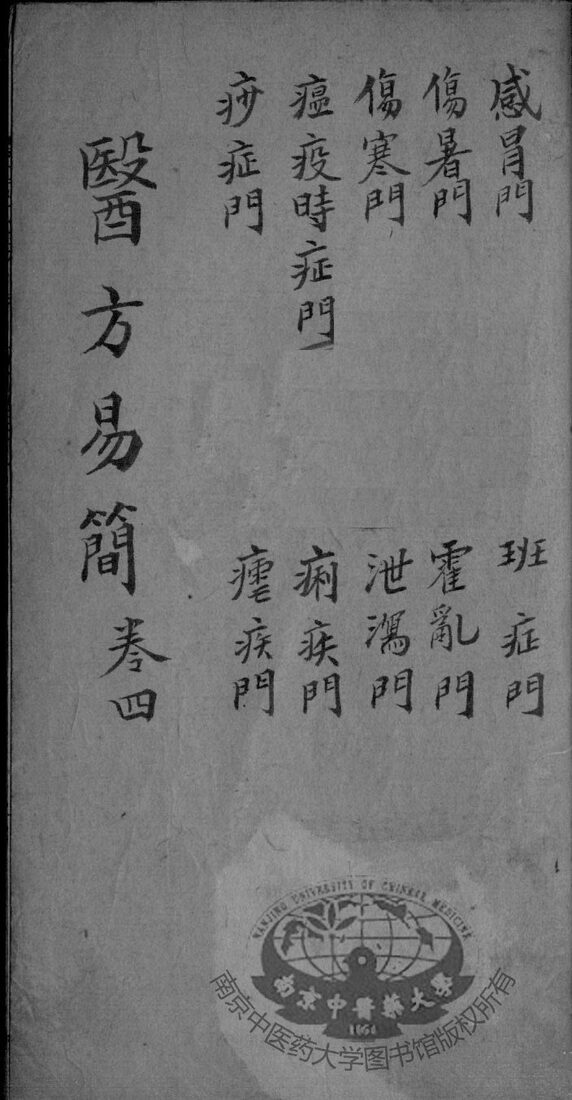 感冒門
傷暑門
傷寒門
瘟疫時症門
痧症門
班症門
霍亂門
泄瀉門
痢疾門
瘧疾門
醫方易簡 卷四
NANJING UNIVERSITY OF CHINESE MEDICINE
南京中醫藥大學
1954
南京中医药大学图书馆版权所有